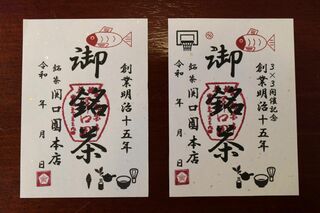 創業明治十五年
御銘茶
銘茶 関口園本店
令和 年 月 日
3×3開催記念
創業明治十五年
御銘茶
銘茶 関口園本店
令和 年 月 日